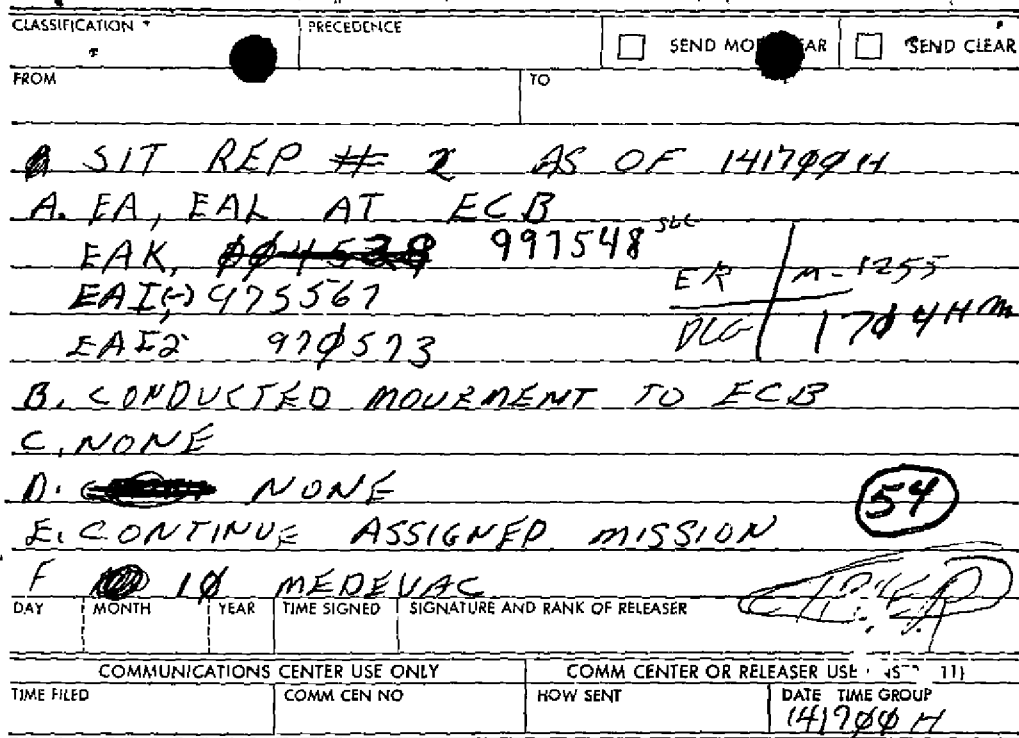 CLASSIFICATION PRECEDENCE SEND CLEAR
FROM TO
SIT REP # 2 AS OF 1417ØØ H
A. EA, EAL AT ECB
EAK, 997548
EAI(-) 975567
EAI2 97Ø573
ER M-1255
DLG 17Ø4H
B. CONDUCTED MOVEMENT TO ECB
C. NONE
D. NONE
E. CONTINUE ASSIGNED MISSION
54
F 1Ø MEDEVAC
DAY MONTH YEAR TIME SIGNED SIGNATURE AND RANK OF RELEASER
COMMUNICATIONS CENTER USE ONLY COMM CENTER OR RELEASER USE
TIME FILED COMM CEN NO HOW SENT DATE TIME GROUP
1417ØØ H